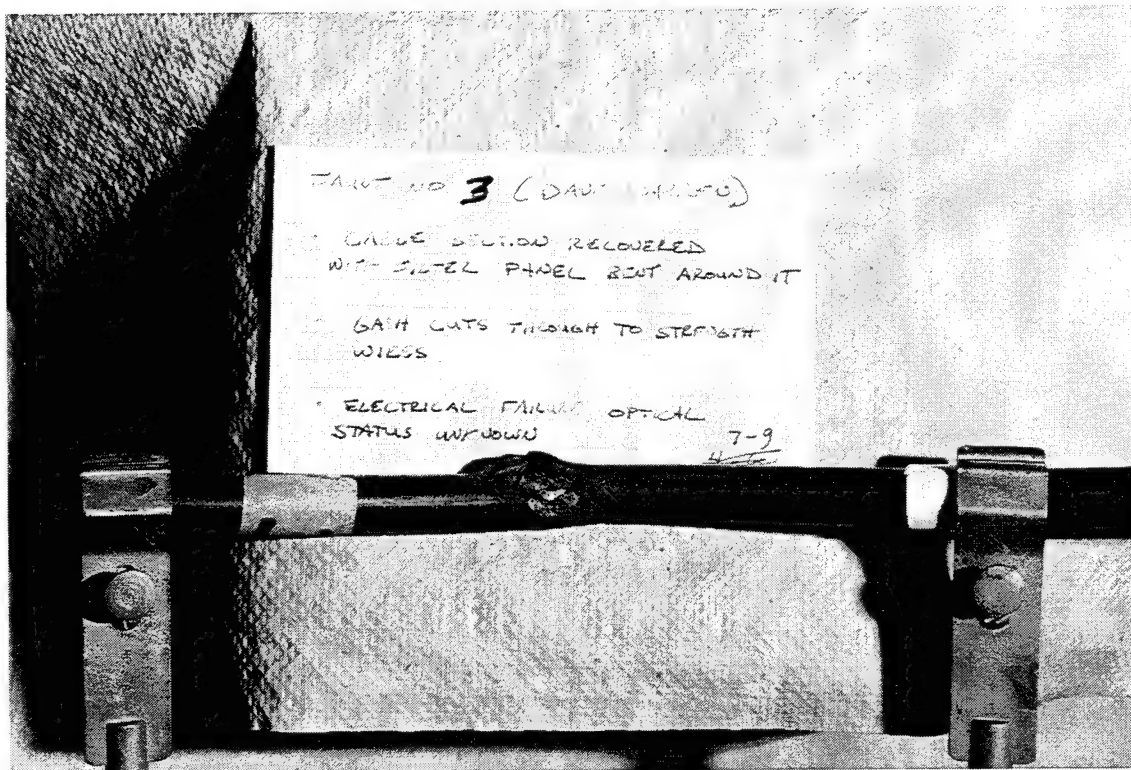 NO 3 (
CABLE SECTION RECOVERED
WITH PANEL BENT AROUND IT
GASH CUTS THROUGH TO STRENGTH
WIRES
ELECTRICAL FAILURE OPTICAL
STATUS UNKNOWN
7-9